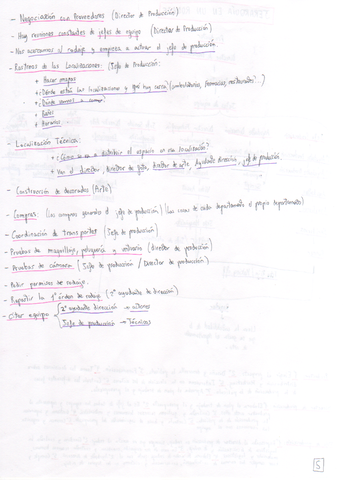 - Negociación con Proveedores (Director de Producción)
- Hay reuniones constantes de jefes de equipo (Director de Producción)
- Nos acercamos al rodaje y empieza a actuar el jefe de producción.
- Rastreos de las Localizaciones: (Jefe de Producción:
+ Hacer mapas
+ ¿Dónde están las localizaciones y qué hay cerca? (ambulatorios, farmacias, restaurantes...)
+ ¿Dónde vamos a comer?
+ Baños
+ Horarios
- Localización Técnica:
+ ¿Cómo se va a distribuir el espacio en esa localización?
+ Van el director, director de foto, director de arte, Ayudante dirección, jefe de producción
- Construcción de decorados (Arte)
- Compras: (las compras generales el jefe de producción) (las cosas de cada departamento el propio departamento)
- Coordinación de Transportes (Jefe de producción)
- Pruebas de maquillaje, peluquería y vestuario (director de producción)
- Pruebas de cámara (Jefe de producción / Director de producción)
- Pedir permisos de rodaje.
- Repartir la 1ª orden de rodaje (2º ayudante de dirección)
- Citar equipo
2º ayudante dirección → actores
Jefe de producción → Técnicos
5